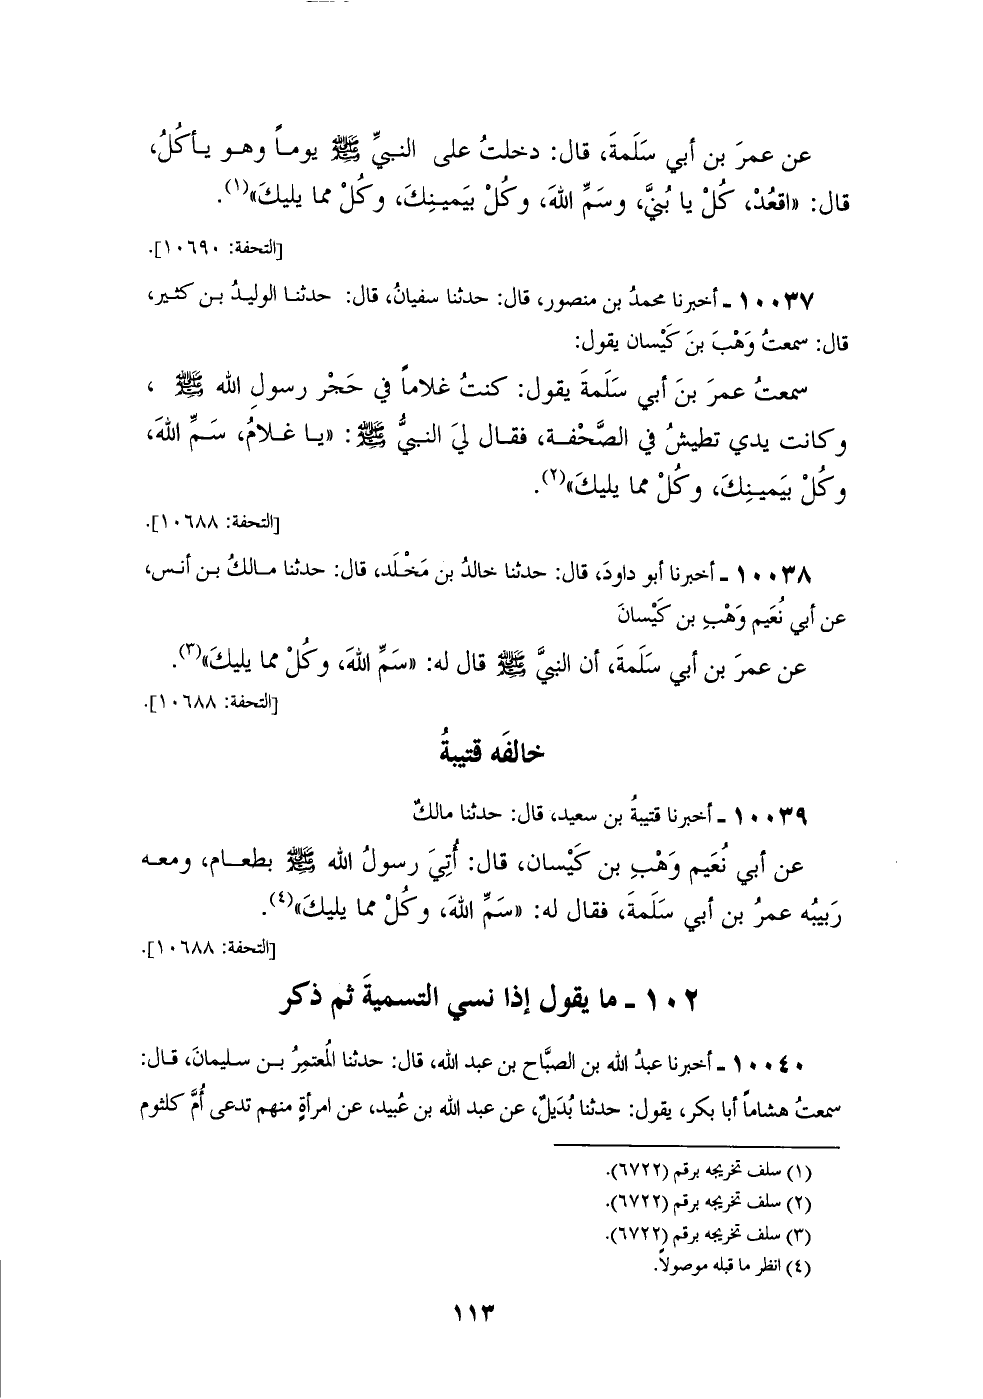 عن عمرَ بن أبي سَلَمةَ، قال: دخلتُ على النبيِّ ﷺ يوماً وهو يأكُلُ،
قال: «اقعُدْ، كُلْ يا بُنيَّ، وسَمِّ اللهَ، وكُلْ بيَمينِكَ، وكُلْ مما يليكَ»(١).
[التحفة: ١٠٦٩٠].
١٠٠٣٧ ـ أخبرنا محمدُ بن منصور، قال: حدثنا سفيانُ، قال: حدثنا الوليدُ بن كثير،
قال: سمعتُ وَهْبَ بنَ كَيْسان يقول:
سمعتُ عمرَ بنَ أبي سَلَمةَ يقول: كنتُ غلاماً في حَجْر رسولِ الله ﷺ ،
وكانت يدي تطيشُ في الصَّحْفة، فقال ليَ النبيُّ ﷺ: «يا غلامُ، سَمِّ اللهَ،
وكُلْ بيَمينِكَ، وكُلْ مما يليكَ»(٢).
[التحفة: ١٠٦٨٨].
١٠٠٣٨ ـ أخبرنا أبو داودَ، قال: حدثنا خالدُ بن مَخْلَد، قال: حدثنا مالكُ بن أنس،
عن أبي نُعَيم وَهْبِ بن كَيْسانَ
عن عمرَ بن أبي سَلَمةَ، أن النبيَّ ﷺ قال له: «سَمِّ اللهَ، وكُلْ مما يليكَ»(٣).
[التحفة: ١٠٦٨٨].
خالفَه قتيبةُ
١٠٠٣٩ ـ أخبرنا قتيبةُ بن سعيد، قال: حدثنا مالكٌ
عن أبي نُعَيم وَهْبِ بن كَيْسان، قال: أُتِيَ رسولُ الله ﷺ بطعام، ومعه
رَبيبُه عمرُ بن أبي سَلَمةَ، فقال له: «سَمِّ اللهَ، وكُلْ مما يليكَ»(٤).
[التحفة: ١٠٦٨٨].
١٠٢ ـ ما يقول إذا نسي التسميةَ ثم ذكر
١٠٠٤٠ ـ أخبرنا عبدُ الله بن الصبَّاح بن عبد الله، قال: حدثنا المُعتمِرُ بن سليمانَ، قال:
سمعتُ هشاماً أبا بكر، يقول: حدثنا بُدَيلٌ، عن عبد الله بن عُبيد، عن امرأةٍ منهم تدعى أُمَّ كلثوم
(١) سلف تخريجه برقم (٦٧٢٢).
(٢) سلف تخريجه برقم (٦٧٢٢).
(٣) سلف تخريجه برقم (٦٧٢٢).
(٤) انظر ما قبله موصولاً.
١١٣